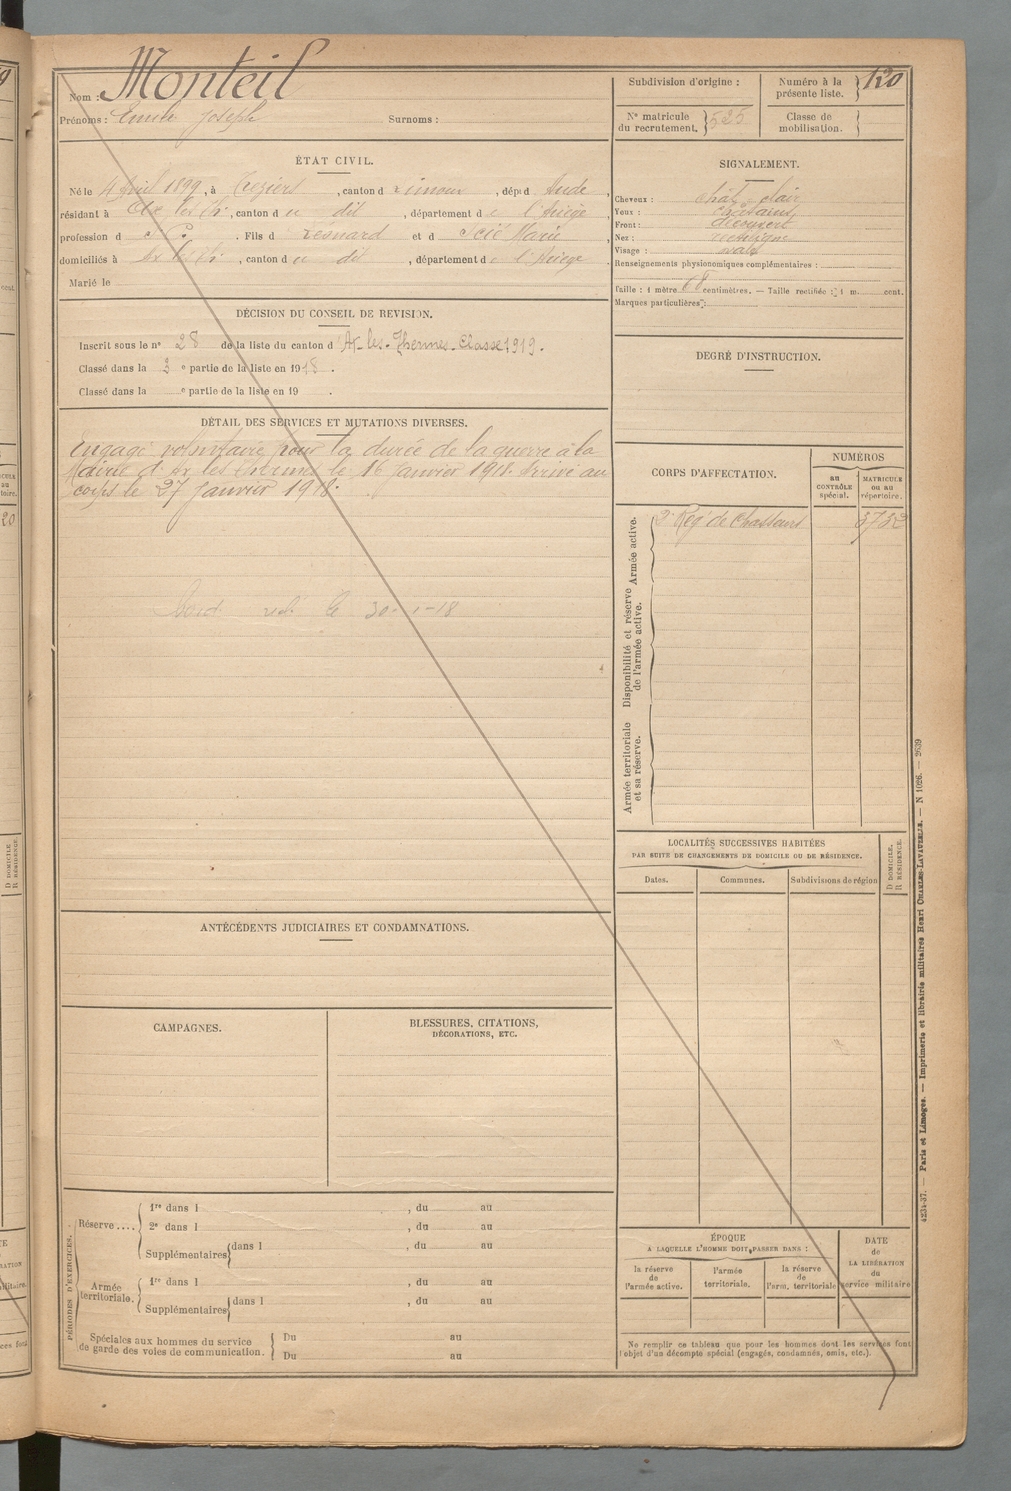 Nom : Monteil
Prénoms : Emile Joseph Surnoms :
Subdivision d'origine :
Numéro à la présente liste. 120
N° matricule du recrutement. 525
Classe de mobilisation.
ÉTAT CIVIL.
Né le 4 Avril 1899, à Treziers, canton d Limoux, dép t d Aude,
résidant à Ax les Th, canton d u dit, département d e l'Ariège,
profession d S. P. . Fils d et d Marie,
domiciliés à Ax les Th, canton d u dit, département d e l'Ariège
Marié le
SIGNALEMENT.
Cheveux : chât clair
Yeux : châtains
Front : découvert
Nez : rectiligne
Visage : ovale
Renseignements physionomiques complémentaires :
Taille : 1 mètre 68 centimètres. — Taille rectifiée : 1 m. cent.
Marques particulières :
DÉCISION DU CONSEIL DE REVISION.
Inscrit sous le n° 28 de la liste du canton d'Ax-les-Thermes-Classe 1919.
Classé dans la 3 e partie de la liste en 1918.
Classé dans la e partie de la liste en 19 .
DEGRÉ D'INSTRUCTION.
DÉTAIL DES SERVICES ET MUTATIONS DIVERSES.
Engagé volontaire pour la durée de la guerre à la
Mairie d'Ax les Thermes le 16 Janvier 1918. Arrivé au
corps le 27 Janvier 1918.
le 30-1-18
CORPS D'AFFECTATION.
NUMÉROS
au CONTRÔLE spécial.
MATRICULE ou au répertoire.
Armée active.
Disponibilité et réserve de l'armée active.
Armée territoriale et sa réserve.
2e Régt de Chasseurs 3732
LOCALITÉS SUCCESSIVES HABITÉES
PAR SUITE DE CHANGEMENTS DE DOMICILE OU DE RÉSIDENCE.
D DOMICILE.
R RÉSIDENCE.
Dates. Communes. Subdivisions de région
ANTÉCÉDENTS JUDICIAIRES ET CONDAMNATIONS.
CAMPAGNES.
BLESSURES, CITATIONS,
DÉCORATIONS, ETC.
PÉRIODES D'EXERCICES.
Réserve ....
1re dans l , du au
2e dans l , du au
Supplémentaires dans l , du au
Armée territoriale.
1re dans l , du au
Supplémentaires dans l , du au
Spéciales aux hommes du service
de garde des voies de communication.
Du au
Du au
ÉPOQUE
A LAQUELLE L'HOMME DOIT PASSER DANS :
la réserve de l'armée active.
l'armée territoriale.
la réserve de l'arm. territoriale
DATE de LA LIBÉRATION du service militaire
Ne remplir ce tableau que pour les hommes dont les services font
l'objet d'un décompte spécial (engagés, condamnés, omis, etc.).
4234-37. — Paris et Limoges. — Imprimerie et librairie militaires Henri CHARLES-LAVAUZELLE. — N 1026. — 2639